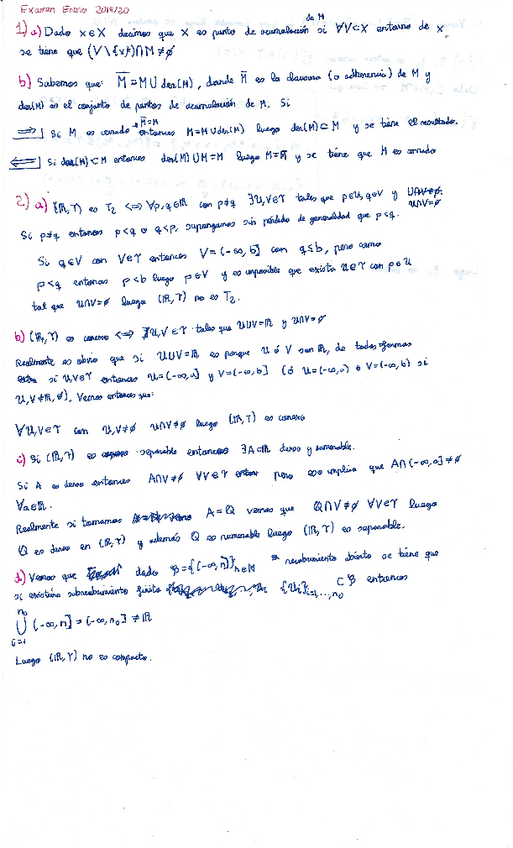 Examen Enero 2019/20
de M
1) a) Dado x∈X decimos que x es punto de acumulación si ∀V⊂X entorno de x
se tiene que (V\{x})∩M≠∅
b) Sabemos que M̅=M∪der(M), donde M̅ es la clausura (o adherencia) de M y
der(M) es el conjunto de puntos de acumulación de M. Si
M̅=M
⟹| Si M es cerrado entonces M=M∪der(M) luego der(M)⊂M y se tiene el resultado.
⟸| Si der(M)⊂M entonces der(M)∪M=M luego M=M̅ y se tiene que M es cerrado
2) a) (ℝ,τ) es T₂ ⟺ ∀p,q∈ℝ con p≠q ∃U,V∈τ tales que p∈U, q∈V y U∩V=∅.
U∩V=∅
Si p≠q entonces p<q o q<p, supongamos sin pérdida de generalidad que p<q.
Si q∈V con V∈τ entonces V=(-∞,b] con q≤b, pero como
p<q entonces p<b luego p∈V y es imposible que exista U∈τ con p∈U
tal que U∩V=∅ luego (ℝ,τ) no es T₂.
b) (ℝ,τ) es conexo ⟺ ∄U,V∈τ tales que U∪V=ℝ y U∩V=∅
Realmente es obvio que si U∪V=ℝ es porque U ó V son ℝ, de todas formas
si U,V∈τ entonces U=(-∞,a] y V=(-∞,b] (ó U=(-∞,a) o V=(-∞,b) si
U,V≠ℝ,∅). Vemos entonces que:
∀U,V∈τ con U,V≠∅ U∩V≠∅ luego (ℝ,τ) es conexo
c) Si (ℝ,τ) es separable entonces ∃A⊂ℝ denso y numerable.
Si A es denso entonces A∩V≠∅ ∀V∈τ pero eso implica que A∩(-∞,a]≠∅
∀a∈ℝ.
Realmente si tomamos A=Q vemos que Q∩V≠∅ ∀V∈τ luego
Q es denso en (ℝ,τ) y además Q es numerable luego (ℝ,τ) es separable.
d) Vemos que dado β={(-∞,n]}n∈ℕ recubrimiento abierto se tiene que
si existiera subrecubrimiento finito {Uᵢ}i=1,...,n₀ ⊂ β entonces
n₀
⋃ (-∞,n] = (-∞,n₀] ≠ℝ
i=1
Luego (ℝ,τ) no es compacto.